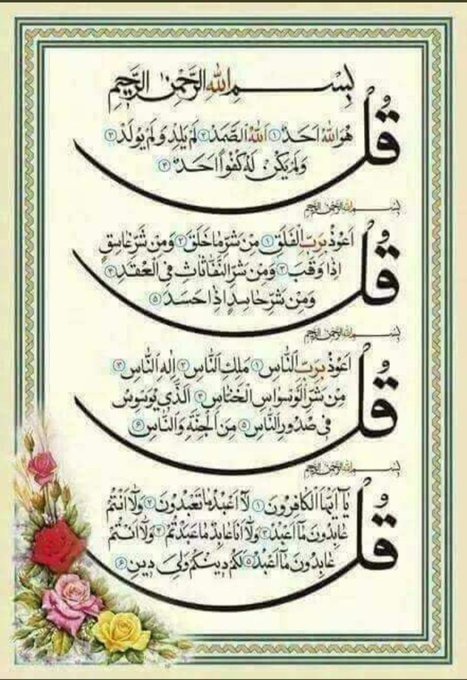 بِسْمِ اللهِ الرَّحْمٰنِ الرَّحِيمِ
قُلْ هُوَ اللهُ اَحَدٌ ١ اَللهُ الصَّمَدُ ٢ لَمْ يَلِدْ وَلَمْ يُولَدْ ٣
وَلَمْ يَكُنْ لَهُ كُفُوًا اَحَدٌ ٤
بِسْمِ اللهِ الرَّحْمٰنِ الرَّحِيمِ
قُلْ اَعُوذُ بِرَبِّ الْفَلَقِ ١ مِنْ شَرِّ مَا خَلَقَ ٢ وَمِنْ شَرِّ غَاسِقٍ
اِذَا وَقَبَ ٣ وَمِنْ شَرِّ النَّفَّاثَاتِ فِي الْعُقَدِ ٤
وَمِنْ شَرِّ حَاسِدٍ اِذَا حَسَدَ ٥
بِسْمِ اللهِ الرَّحْمٰنِ الرَّحِيمِ
قُلْ اَعُوذُ بِرَبِّ النَّاسِ ١ مَلِكِ النَّاسِ ٢ اِلٰهِ النَّاسِ ٣
مِنْ شَرِّ الْوَسْوَاسِ الْخَنَّاسِ ٤ اَلَّذِي يُوَسْوِسُ
فِي صُدُورِ النَّاسِ ٥ مِنَ الْجِنَّةِ وَالنَّاسِ ٦
بِسْمِ اللهِ الرَّحْمٰنِ الرَّحِيمِ
قُلْ يَا اَيُّهَا الْكَافِرُونَ ١ لَا اَعْبُدُ مَا تَعْبُدُونَ ٢ وَلَا اَنْتُمْ
عَابِدُونَ مَا اَعْبُدُ ٣ وَلَا اَنَا عَابِدٌ مَا عَبَدْتُمْ ٤ وَلَا اَنْتُمْ
عَابِدُونَ مَا اَعْبُدُ ٥ لَكُمْ دِينُكُمْ وَلِيَ دِينِ ٦